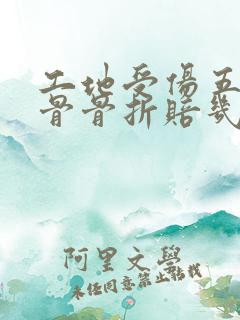 工地受伤五
骨骨折赔几
阿里文学
未经同意禁止转载